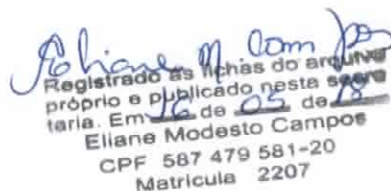 Eliane M. Campos
Registrado as fichas do arquivo
próprio e publicado nesta secre
taria. Em 16 de 05 de 18
Eliane Modesto Campos
CPF 587 479 581-20
Matricula 2207